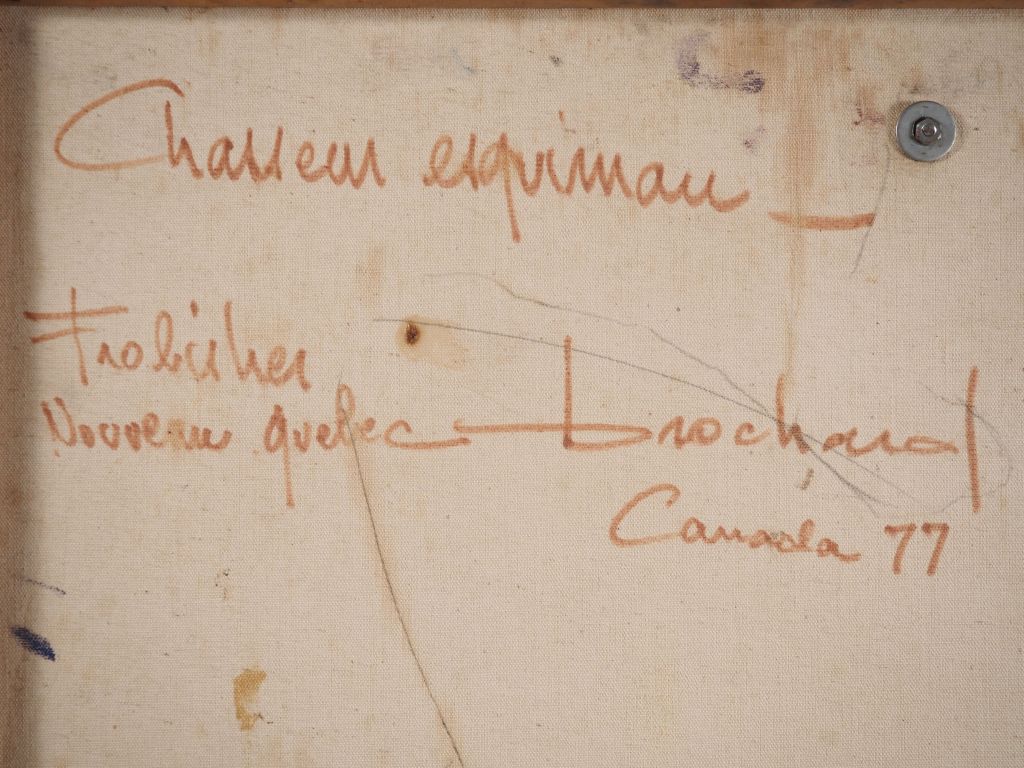 Chasseur esquimau _
Frobisher
Nouveau Quebec - Brochard
Canada 77